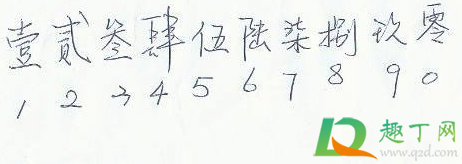 壹贰叁肆伍陆柒捌玖零
1 2 3 4 5 6 7 8 9 0
趣丁网
www.qzd.com